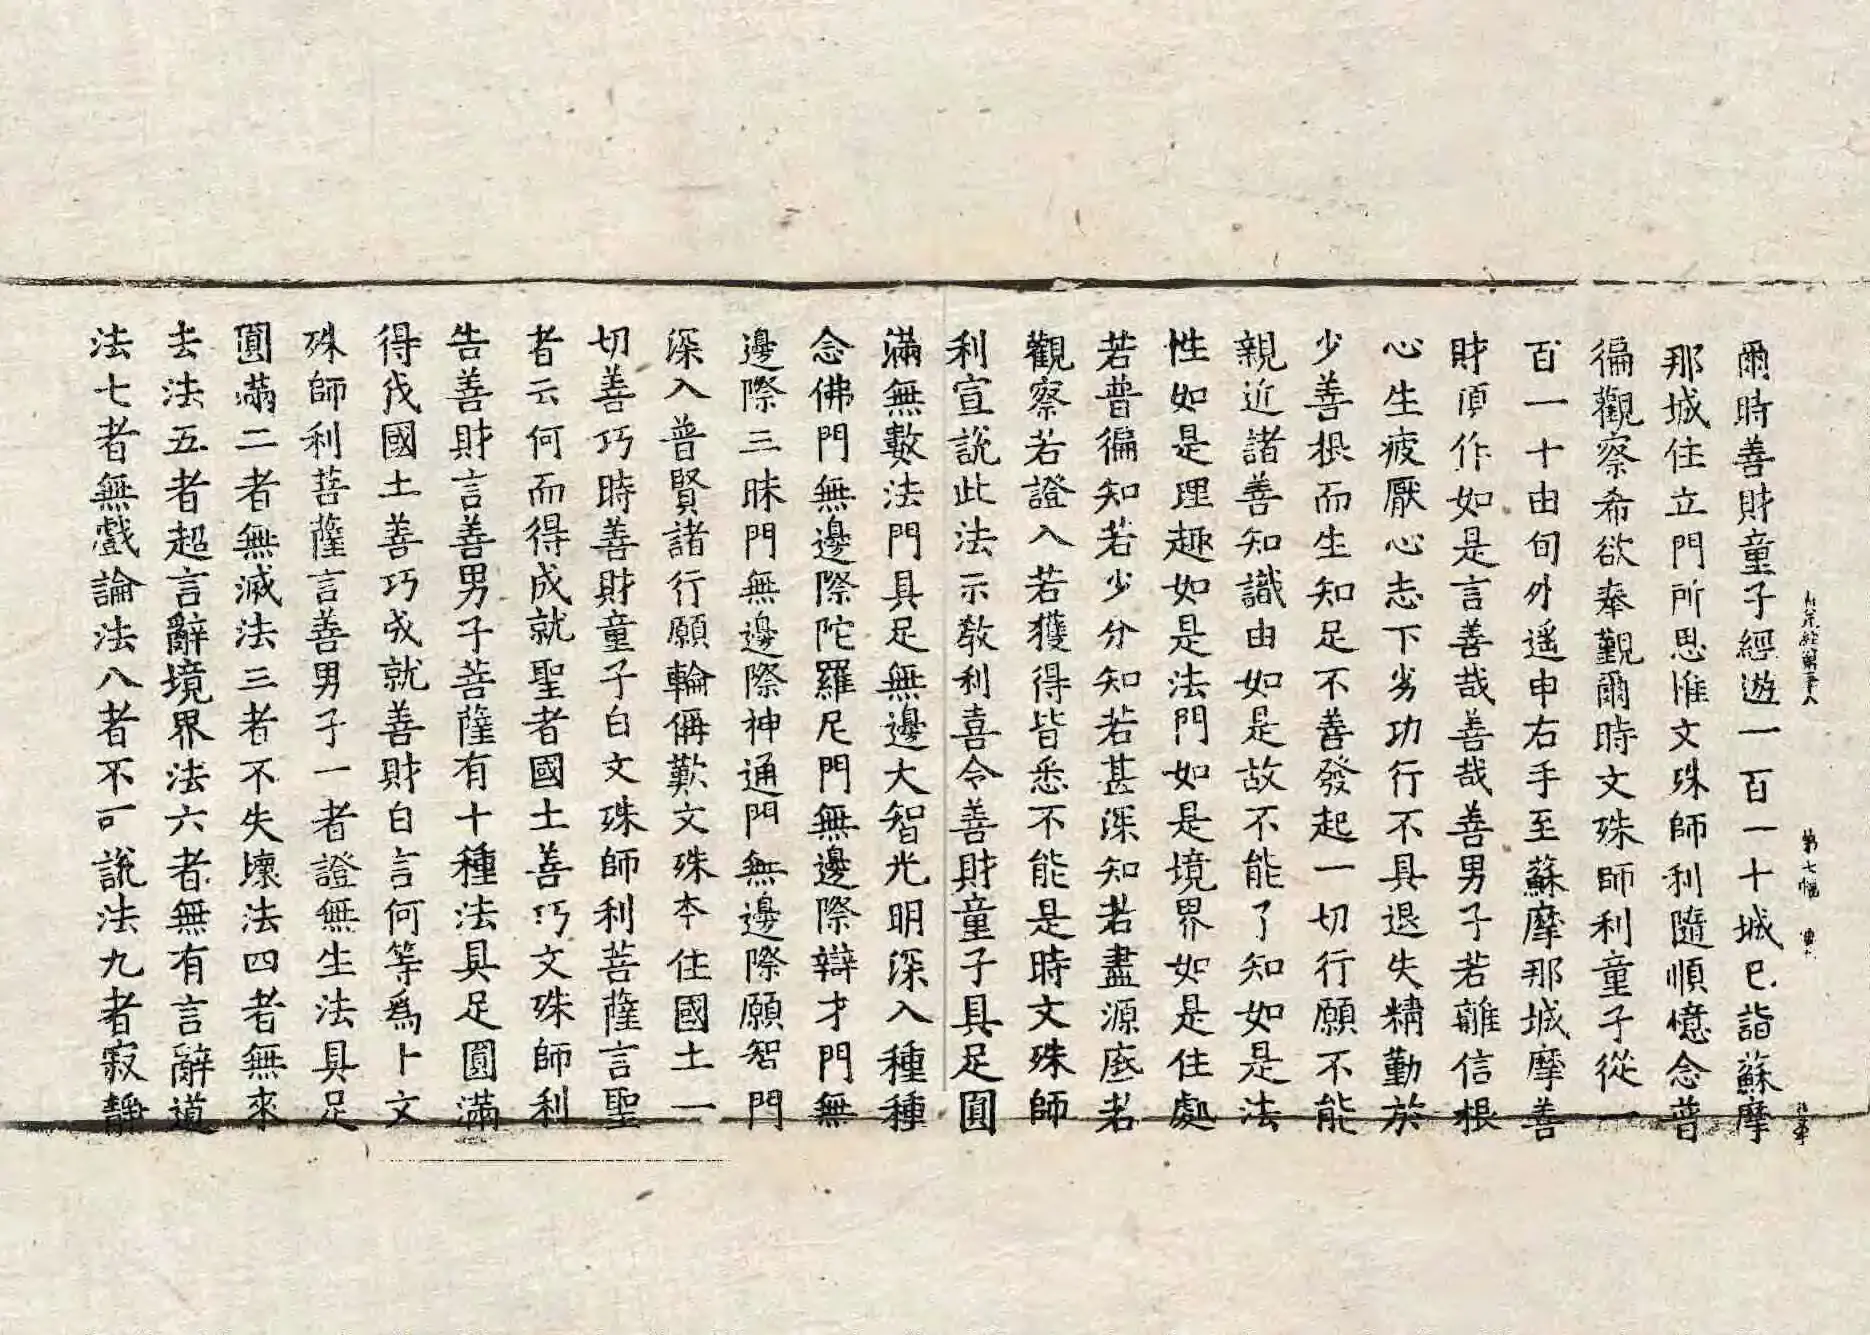 爾時善財童子經遊一百一十城已詣蘇摩
那城住立門所思惟文殊師利隨順憶念普
徧觀察希欲奉覲爾時文殊師利童子從一
百一十由旬外遥申右手至蘇摩那城摩善
財頂作如是言善哉善哉善男子若離信根
心生疲厭心志下劣功行不具退失精勤於
少善根而生知足不善發起一切行願不能
親近諸善知識由如是故不能了知如是法
性如是理趣如是法門如是境界如是住處
若普徧知若少分知若甚深知若盡源底若
觀察若證入若獲得皆悉不能是時文殊師
利宣說此法示教利喜令善財童子具足圓
滿無數法門具足無邊大智光明深入種種
念佛門無邊際陀羅尼門無邊際辯才門無
邊際三昧門無邊際神通門無邊際願智門
深入普賢諸行願輪稱歎文殊本住國土一
切善巧時善財童子白文殊師利菩薩言聖
者云何而得成就聖者國土善巧文殊師利
告善財言善男子菩薩有十種法具足圓滿
得成國土善巧成就善財白言何等為十文
殊師利菩薩言善男子一者證無生法具足
圓滿二者無滅法三者不失壞法四者無來
去法五者超言辭境界法六者無有言辭道
法七者無戲論法八者不可說法九者寂靜